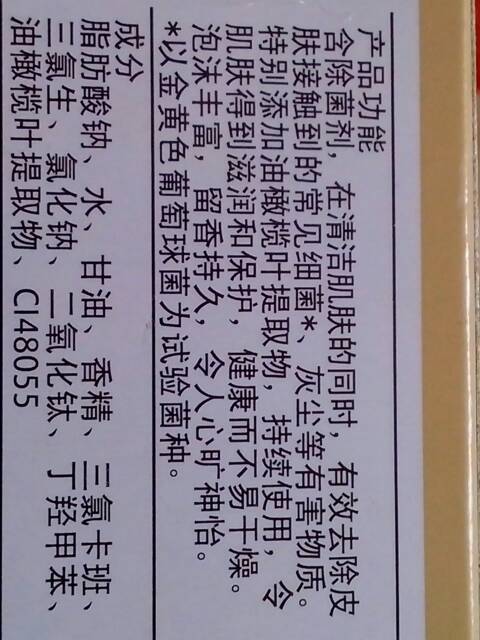 产品功能
含除菌剂，在清洁肌肤的同时，有效去除皮
肤接触到的常见细菌*、灰尘等有害物质。
特别添加油橄榄叶提取物，持续使用，令
肌肤得到滋润和保护，健康而不易干燥。
泡沫丰富，留香持久，令人心旷神怡。
*以金黄色葡萄球菌为试验菌种。
成分
脂肪酸钠、水、甘油、香精、三氯卡班、
三氯生、氯化钠、二氧化钛、丁羟甲苯、
油橄榄叶提取物、CI48055